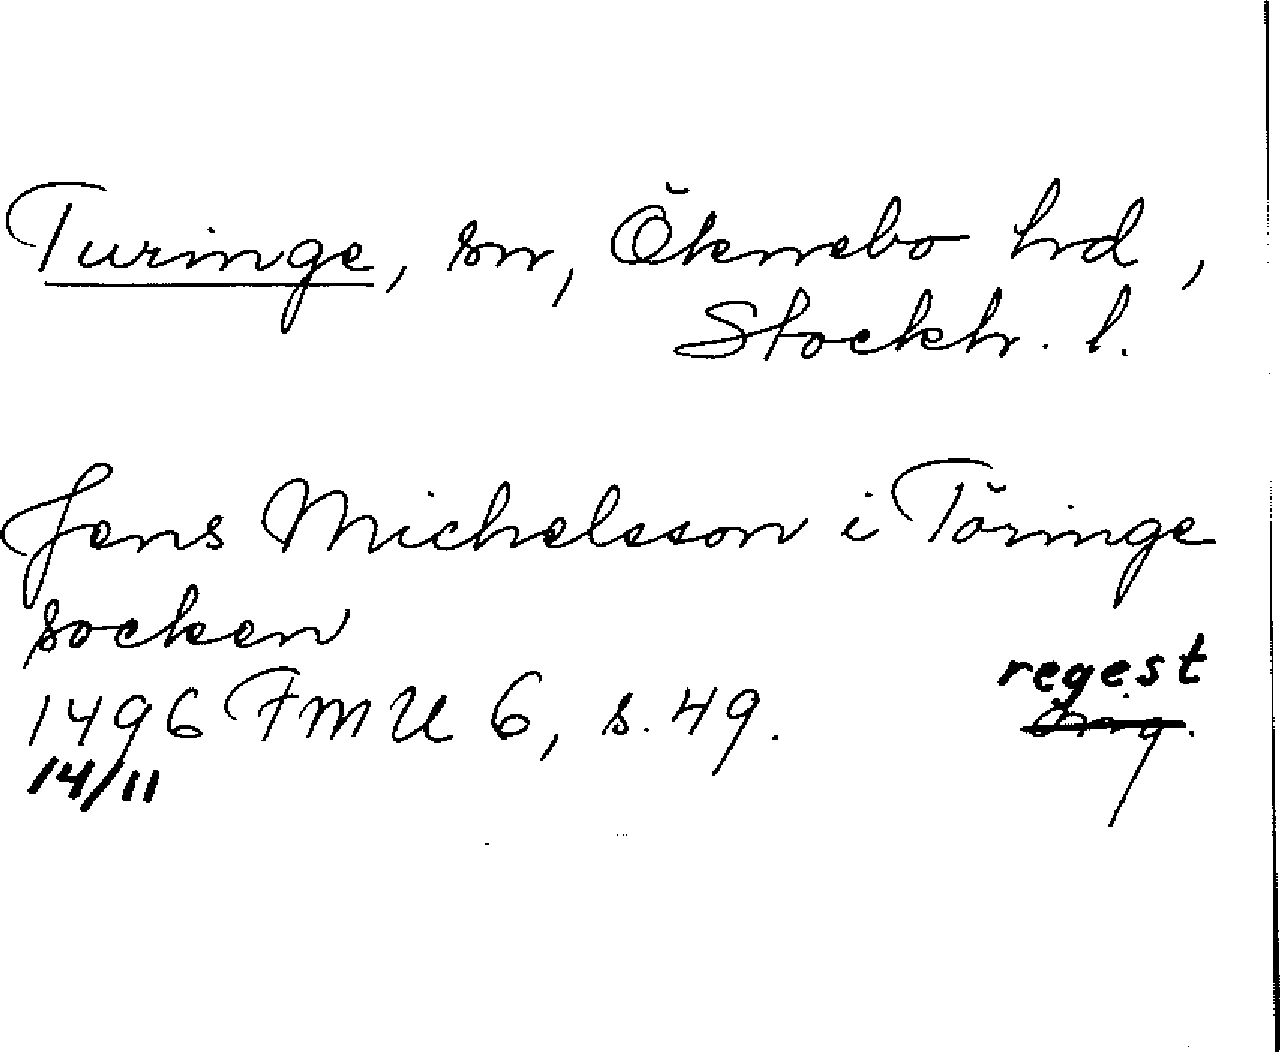 Turinge, sn, Öknebo hd,
Stockh. l.
Jens Michelsson i Töringe
socken
regest
1496 FMU 6, s. 49.
14/11